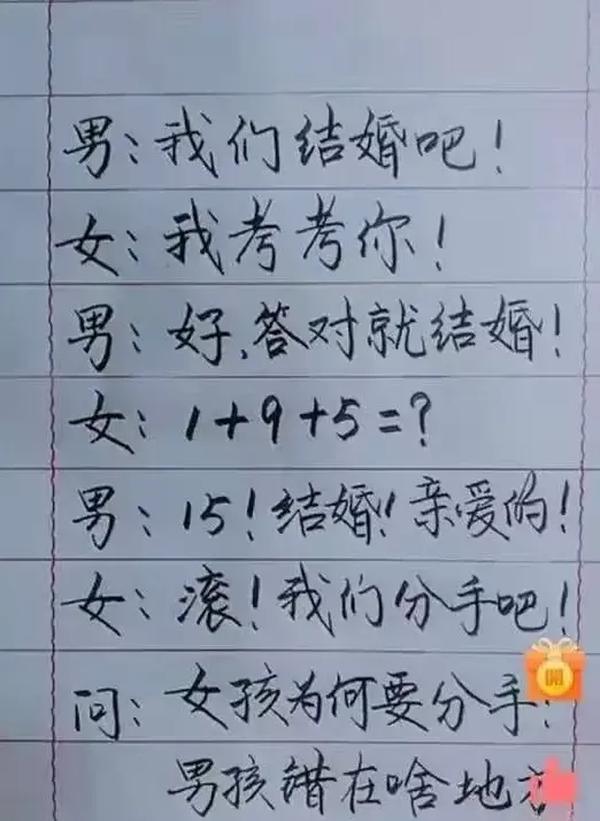 男：我们结婚吧！
女：我考考你！
男：好，答对就结婚！
女：1+9+5=？
男：15！结婚！亲爱的！
女：滚！我们分手吧！
開
问：女孩为何要分手？
男孩错在啥地